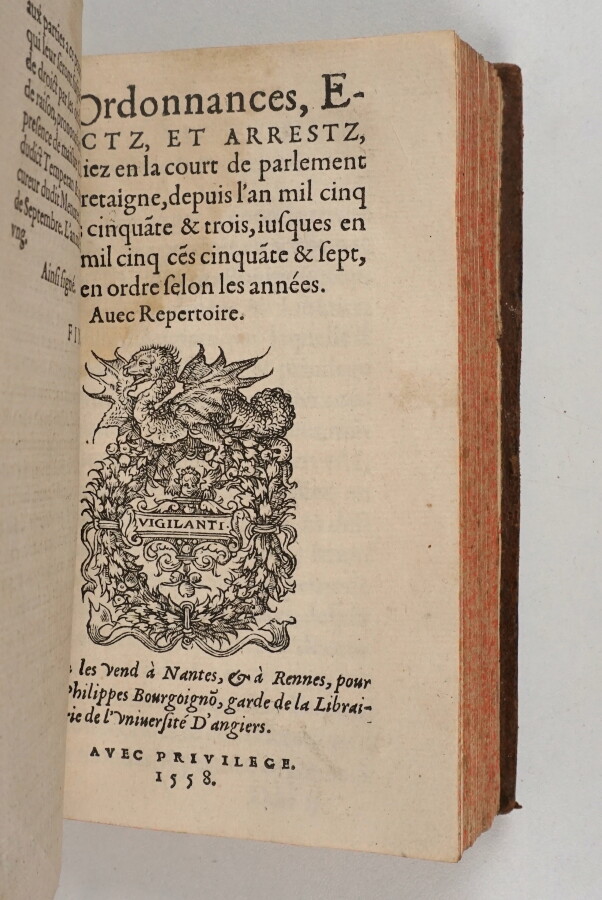 aux parties
qui leur
de droict par les
de raison,
presence de
dudict
cureur dudit
de Septembre. L'an
vng.
Ainsi signé
FI
Ordonnances, E-
CTZ, ET ARRESTZ,
iez en la court de parlement
retaigne, depuis l'an mil cinq
cinquãte & trois, iusques en
mil cinq cẽs cinquãte & sept,
en ordre selon les années.
Auec Repertoire.
VIGILANTI.
les vend à Nantes, & à Rennes, pour
Philippes Bourgoignõ, garde de la Librai-
rie de l'Vniuersité D'angiers.
AVEC PRIVILEGE.
1558.